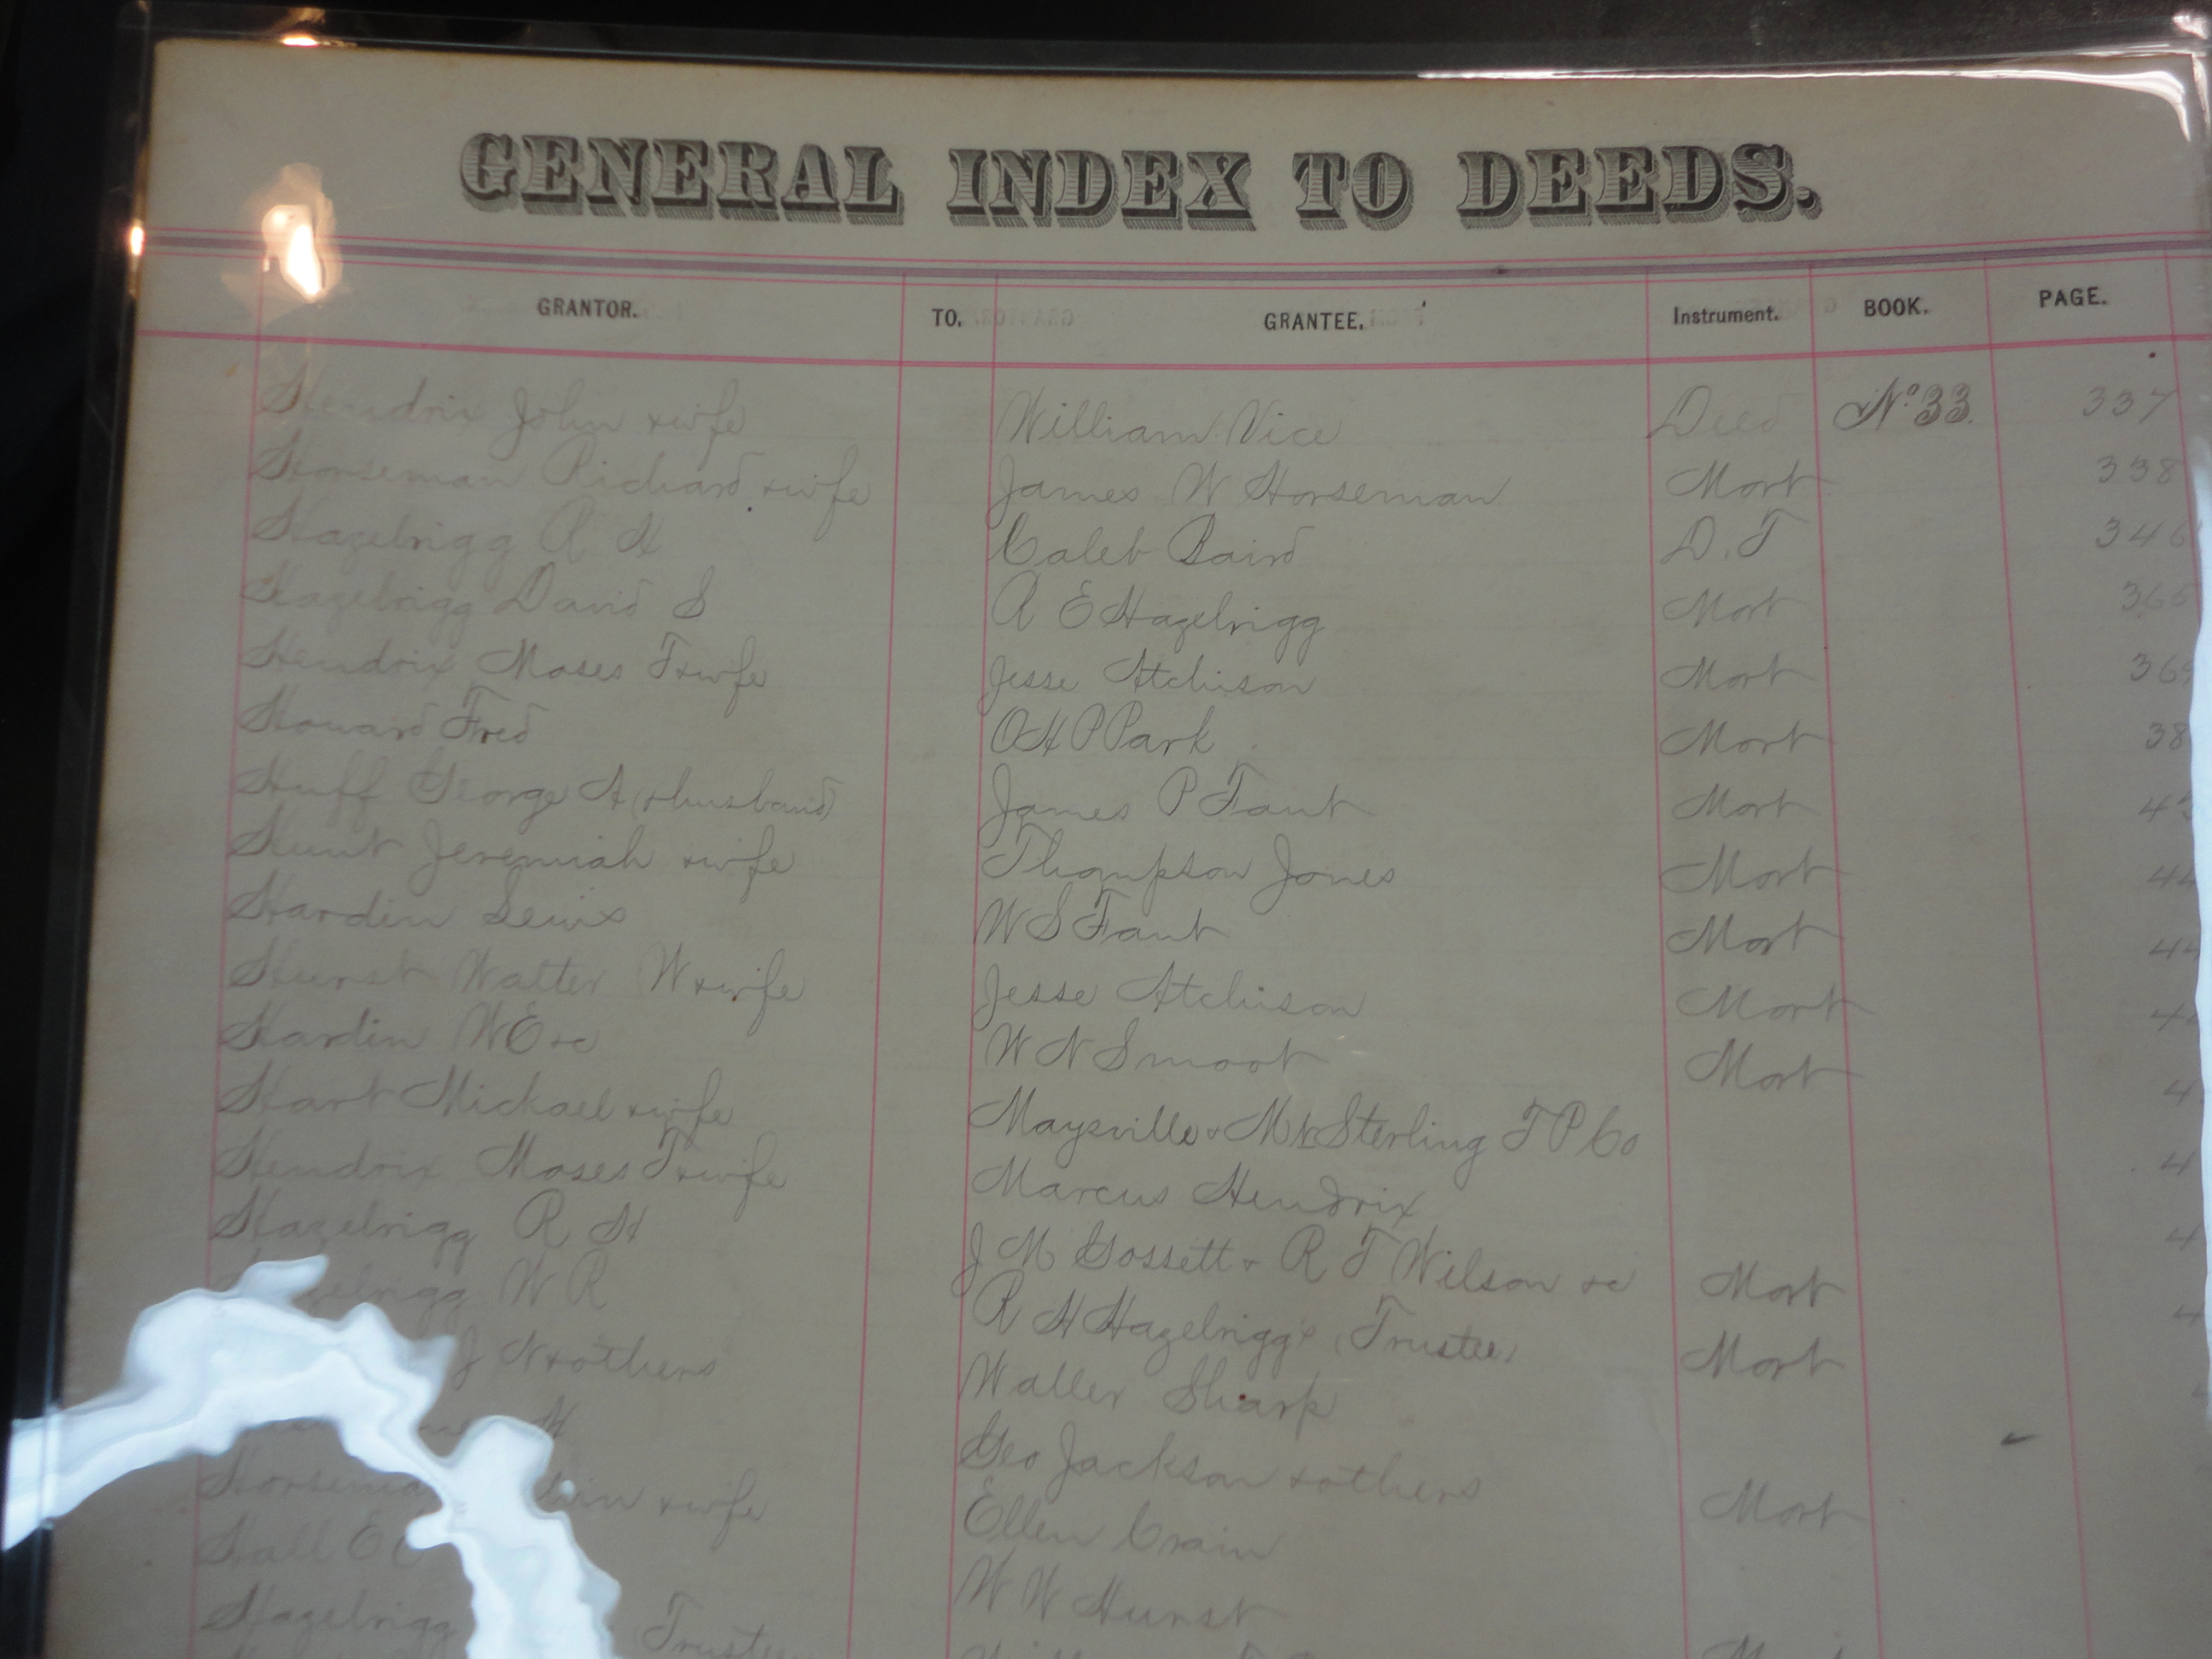 GENERAL INDEX TO DEEDS.
GRANTOR. TO. GRANTEE. Instrument. BOOK. PAGE.
Hendrix John & wife William Vice Deed No. 33. 337
Horseman Richard & wife James W Horseman Mort 338
Hazelrigg R H Caleb Baird D. T 346
Hazelrigg David S A E Hazelrigg Mort
Hendrix Moses T & wife Jesse Atchison Mort 369
Howard Fred O H P Park Mort 38
Huff George A (& husband) James P Fant Mort 43
Hunt Jeremiah & wife Thompson Jones Mort 44
Hardin Lewis W S Fant Mort 44
Hurst Walter W & wife Jesse Atchison Mort 4
Hardin W E &c W N Smoot Mort 4
Hart Mickael & wife Maysville & Mt Sterling T P Co 4
Hendrix Moses T & wife Marcus Hendrix 4
Hazelrigg R H J M Gossett & R T Wilson &c Mort 4
zelrigg W R R H Hazelrigg (Trustee) Mort
J N & others Waller Sharp
H Geo Jackson & others Mort
Horseman & wife Ellen Crain
Hall E C W W Hurst
Hazelrigg Trustee